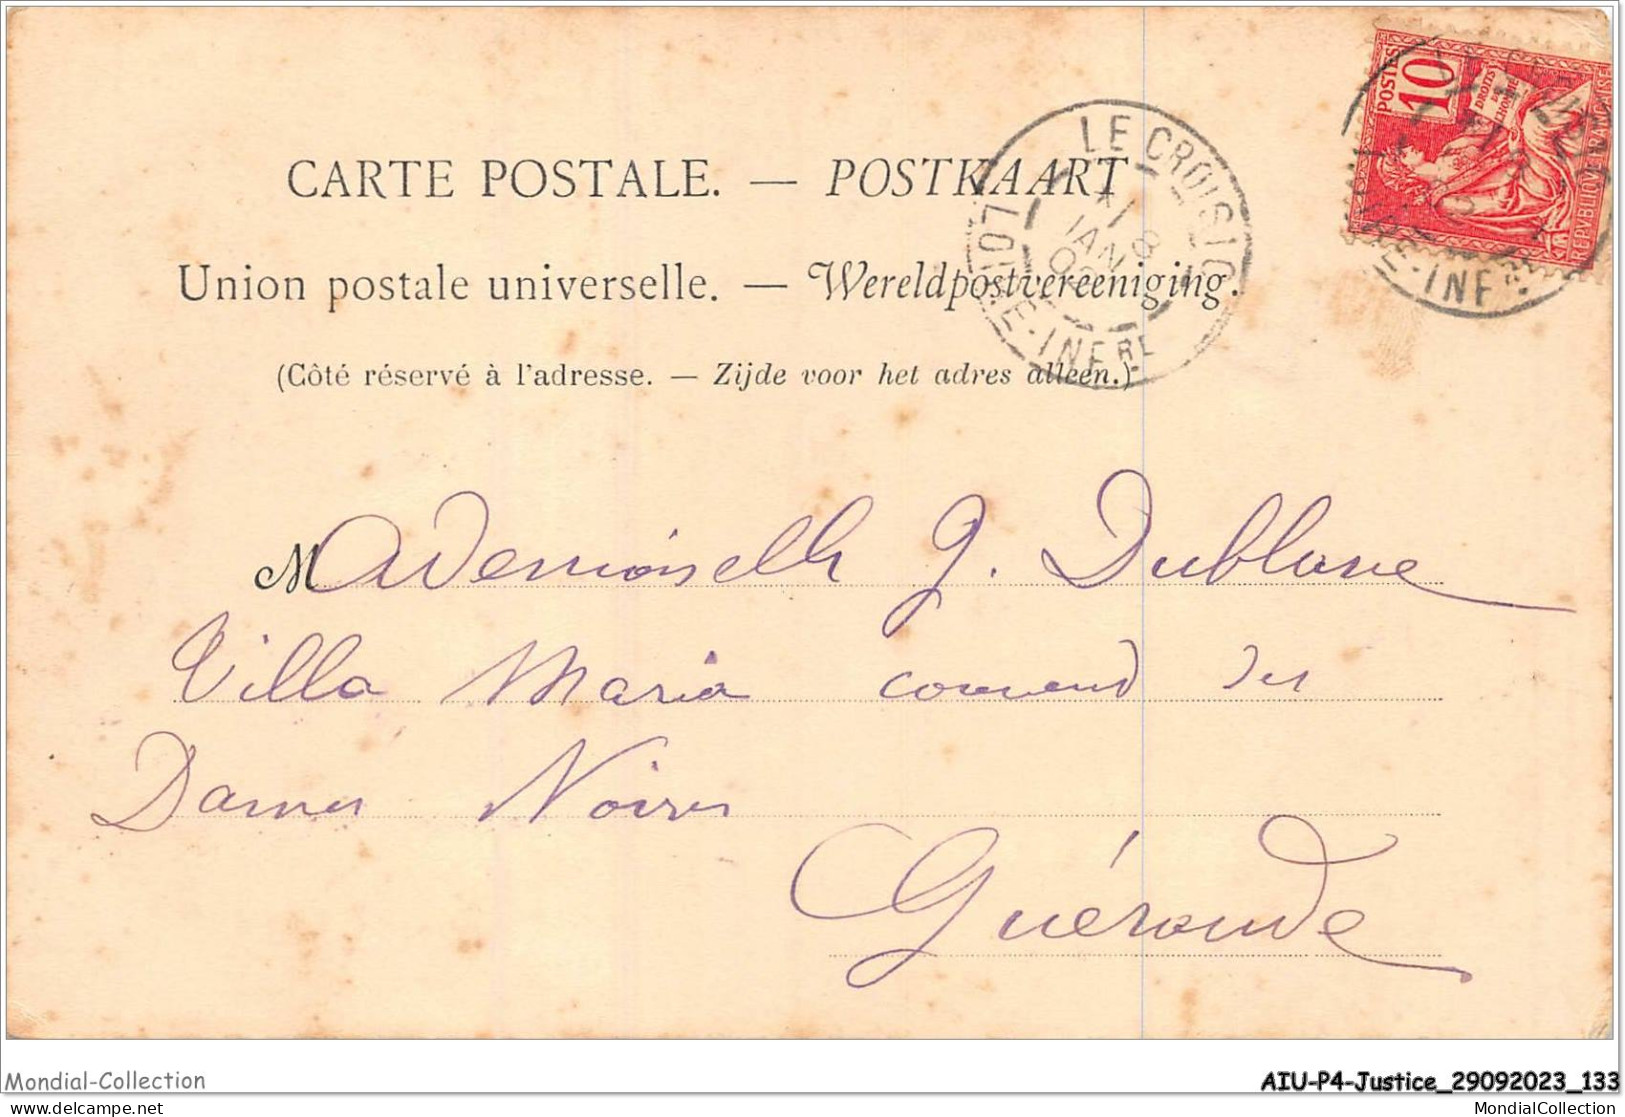 CARTE POSTALE. — POSTKAART
Union postale universelle. — Wereldpostvereeniging.
(Côté réservé à l'adresse. — Zijde voor het adres alleen.)
LE CROISIC
LOIRE-INFRE
18
JAN
POSTES
10
DROITS
DE
L'HOMME
REPVBLIQVE FRANCAISE
RE-INF
Mademoiselle G. Dublane
Villa Maria couvend des
Dames Noires
Guérande
Mondial-Collection
AIU-P4-Justice_29092023_133
MondialCollection